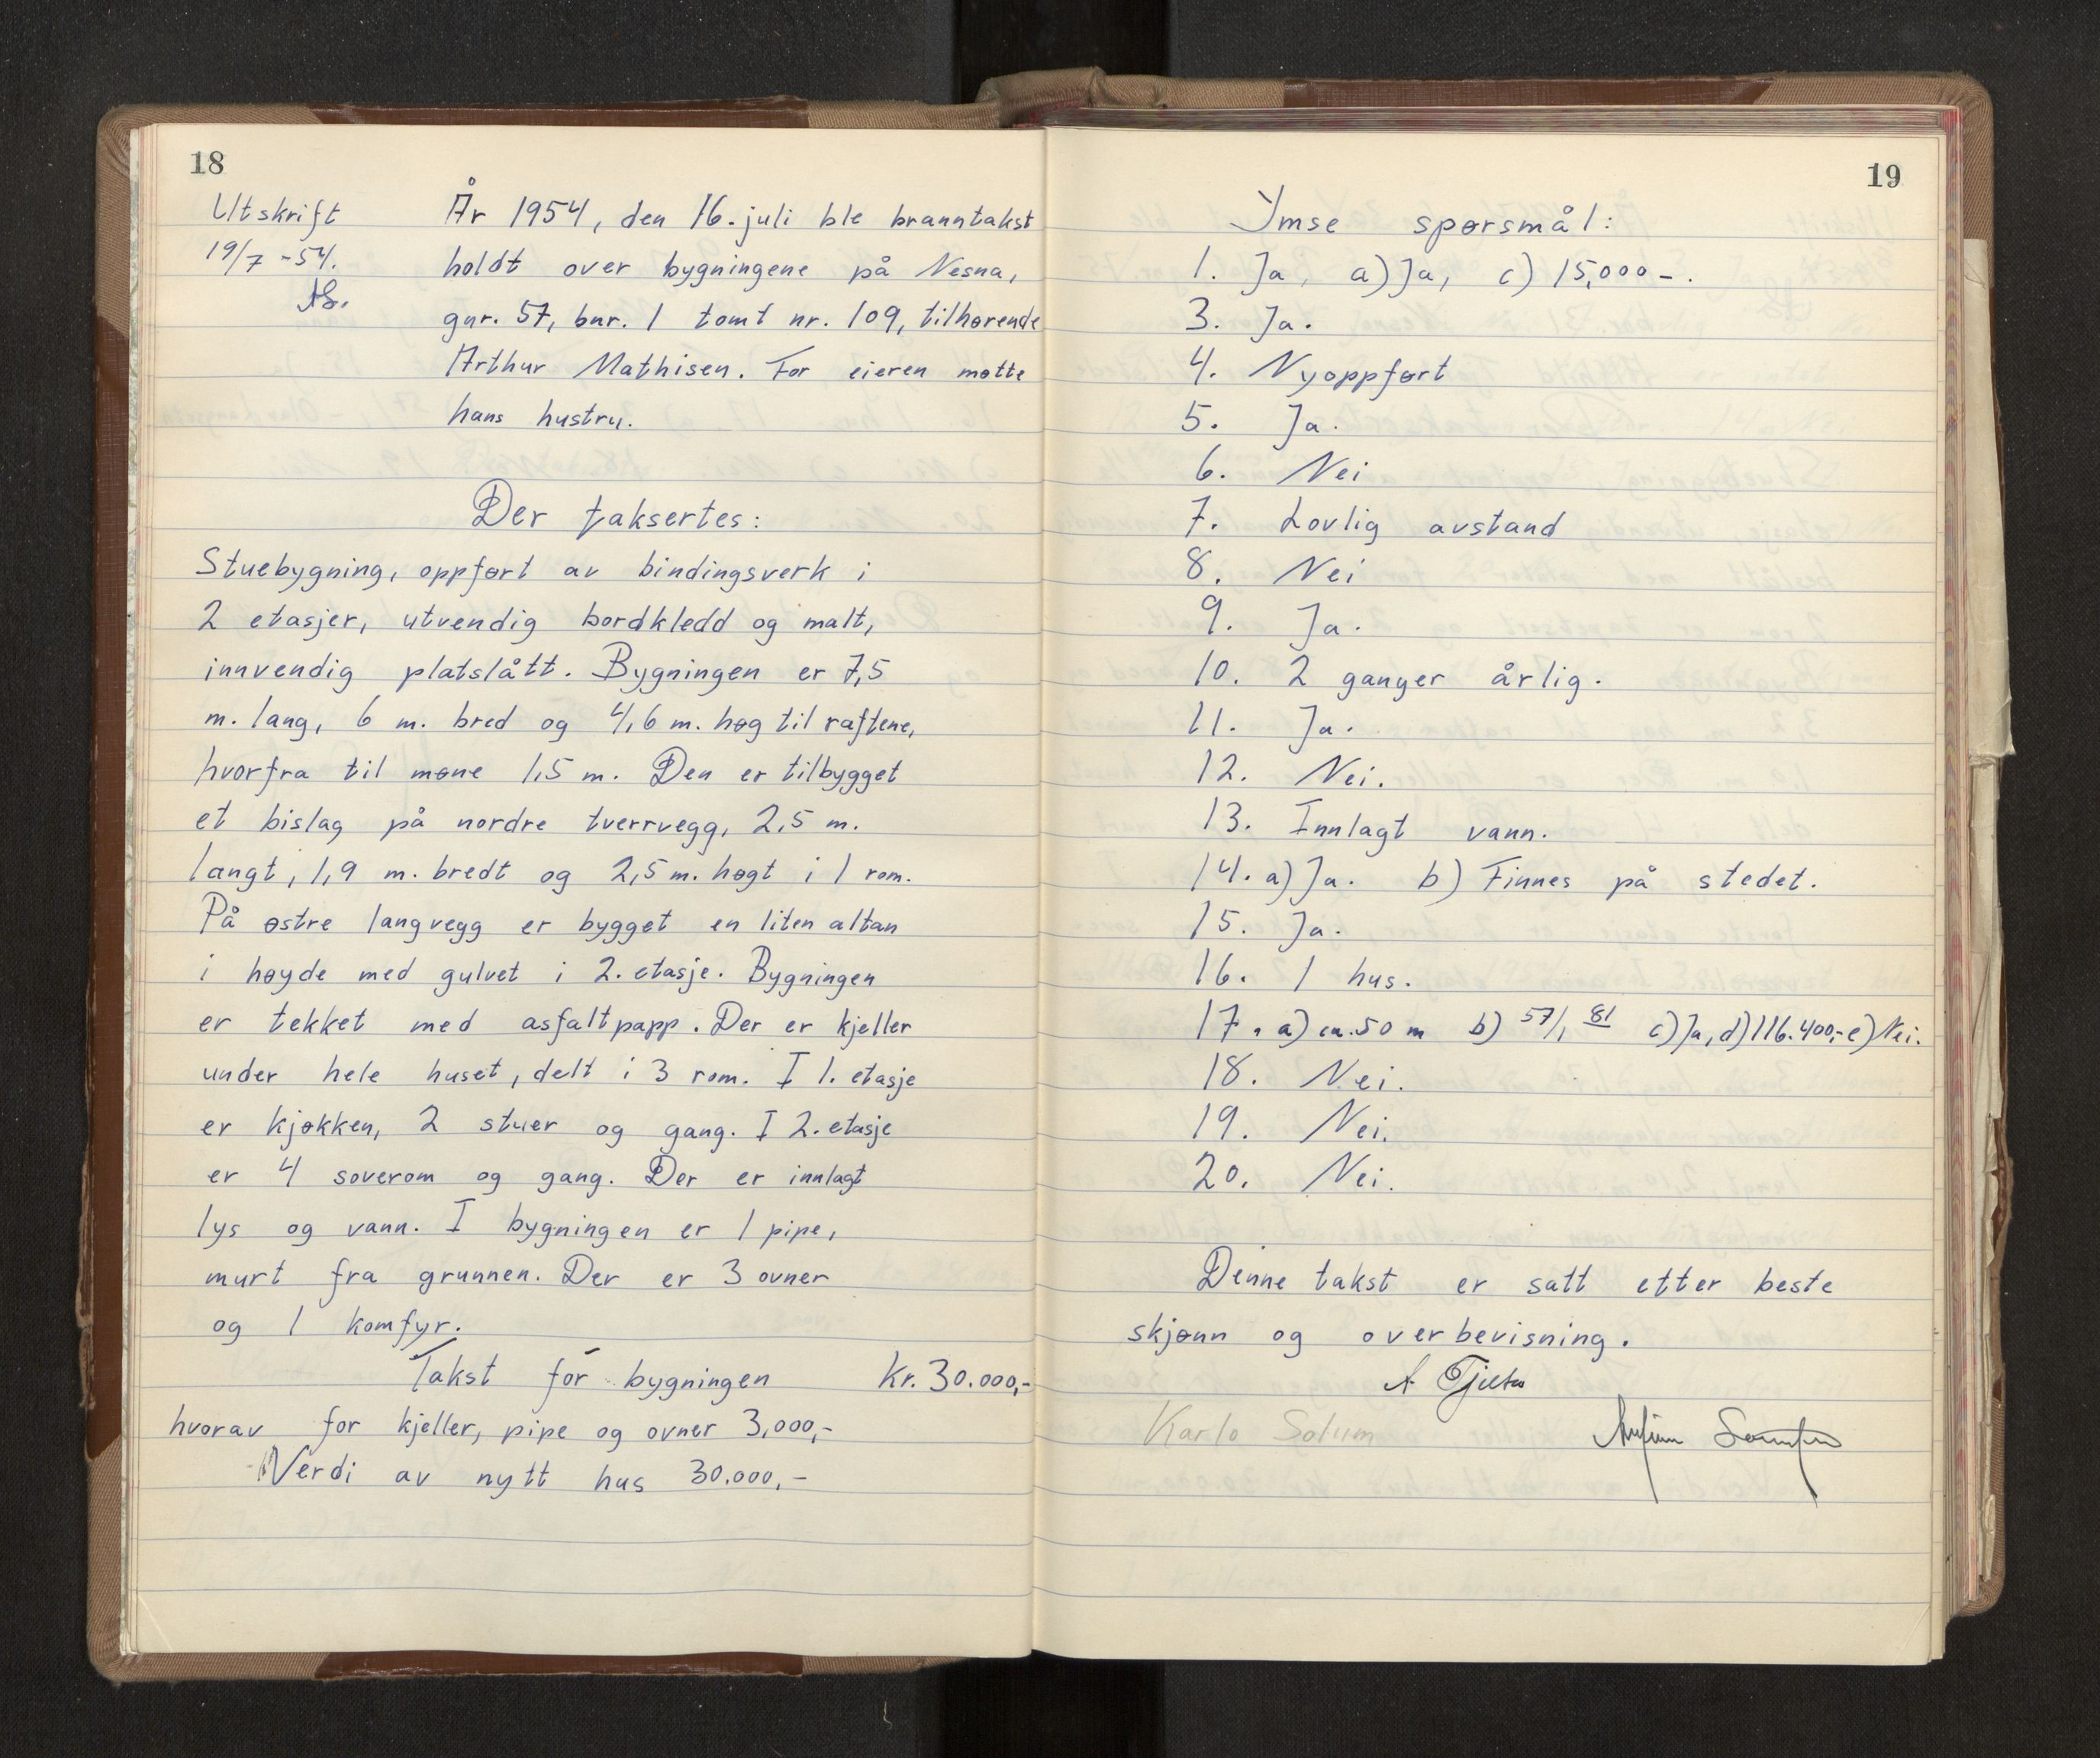 18
Utskrift
19/7 -54.
År 1954, den 16. juli ble branntakst
holdt over bygningene på Nesna,
gnr. 57, bnr. 1 tomt nr. 109, tilhørende
Arthur Mathisen. For eieren møtte
hans hustru.
Der taksertes:
Stuebygning, oppført av bindingsverk i
2 etasjer, utvendig bordkledd og malt,
innvendig platslått. Bygningen er 7,5
m. lang, 6 m. bred og 4,6 m. høg til raftene,
hvorfra til møne 1,5 m. Den er tilbygget
et bislag på nordre tverrvegg, 2,5 m.
langt, 1,9 m. bredt og 2,5 m. høgt i 1 rom.
På østre langvegg er bygget en liten altan
i høyde med gulvet i 2. etasje. Bygningen
er tekket med asfaltpapp. Der er kjeller
under hele huset, delt i 3 rom. I 1. etasje
er kjøkken, 2 stuer og gang. I 2. etasje
er 4 soverom og gang. Der er innlagt
lys og vann. I bygningen er 1 pipe,
murt fra grunnen. Der er 3 ovner
og 1 komfyr.
Takst for bygningen Kr. 30.000,-
hvorav for kjeller, pipe og ovner 3,000,-
Verdi av nytt hus 30.000,-
19
Ymse spørsmål:
1. Ja, a) Ja, c) 15,000-.
3. Ja.
4. Nyoppført
5. Ja.
6. Nei
7. Lovlig avstand
8. Nei
9. Ja.
10. 2 ganger årlig.
11. Ja.
12. Nei.
13. Innlagt vann.
14. a) Ja. b) Finnes på stedet.
15. Ja.
16. 1 hus.
17. a) ca. 50 m b) 57/1 81 c) Ja, d) 116.400,- e) Nei.
18. Nei.
19. Nei.
20. Nei.
Denne takst er satt etter beste
skjønn og overbevisning.
Karlo Solum